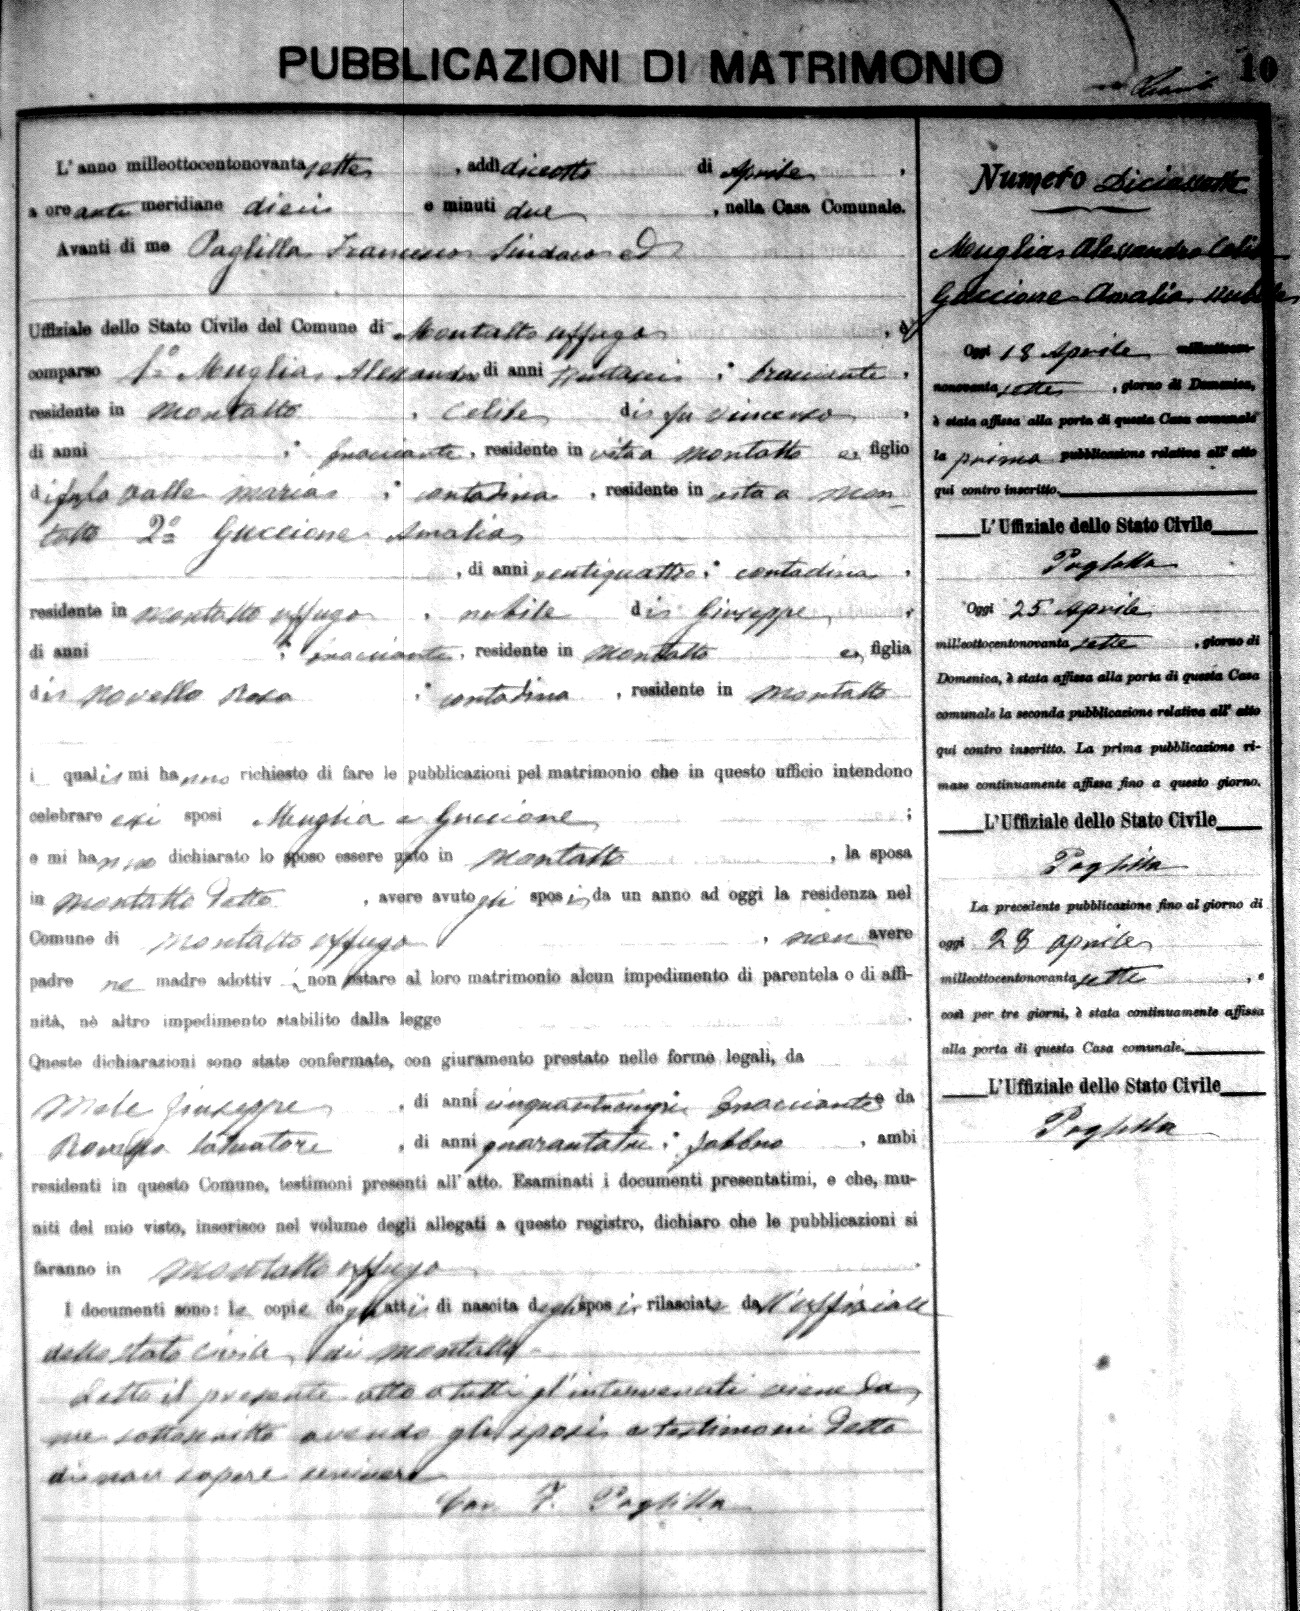 PUBBLICAZIONI DI MATRIMONIO
10
L'anno milleottocentonovantasette, addì diciotto di Aprile,
a ore anti meridiane dieci e minuti due, nella Casa Comunale.
Avanti di me Paglilla Francesco Sindaco ed
Uffiziale dello Stato Civile del Comune di Montalto Uffugo,
comparso 1º Muglia Alessandro di anni trentasei; bracciante,
residente in Montalto, celibe di fu Vincenzo,
di anni ; bracciante, residente in vita a Montalto e figlio
di fu la Valle Maria; contadina, residente in vita a Mon
talto 2º Guccione Amalia
, di anni ventiquattro; contadina,
residente in Montalto Uffugo, nubile di Giuseppe,
di anni ; bracciante, residente in Montalto e figlia
di Novello Rosa; contadina, residente in Montalto
i quali mi hanno richiesto di fare le pubblicazioni pel matrimonio che in questo ufficio intendono
celebrare essi sposi Muglia e Guccione;
e mi hanno dichiarato lo sposo essere nato in Montalto, la sposa
in Montalto detto, avere avuto gli sposi da un anno ad oggi la residenza nel
Comune di Montalto Uffugo, non avere
padre ne madre adottivi, non ostare al loro matrimonio alcun impedimento di parentela o di affi-
nità, nè altro impedimento stabilito dalla legge.
Queste dichiarazioni sono state confermate, con giuramento prestato nelle forme legali, da
Giuseppe, di anni bracciante e da
Salvatore, di anni quarantatre; fabbro, ambi
residenti in questo Comune, testimoni presenti all'atto. Esaminati i documenti presentatimi, e che, mu-
niti del mio visto, inserisco nel volume degli allegati a questo registro, dichiaro che le pubblicazioni si
faranno in Montalto Uffugo.
I documenti sono: le copie degli atti di nascita degli sposi rilasciate dall'uffiziale
dello stato civile di Montalto
Letto il presente atto a tutti gl'intervenuti viene da
me sottoscritto avendo gli sposi e testimoni detto
di non sapere scrivere
Cav. F. Paglilla
Numero Diciassette
Muglia Alessandro Celibe
Guccione Amalia Nubile
Oggi 18 Aprile milleottocen-
novantasette, giorno di Domenica,
è stata affissa alla porta di questa Casa comunale
la prima pubblicazione relativa all'atto
qui contro inscritto.
L'Uffiziale dello Stato Civile
Paglilla
Oggi 25 Aprile
milleottocentonovantasette, giorno di
Domenica, è stata affissa alla porta di questa Casa
comunale la seconda pubblicazione relativa all'atto
qui contro inscritto. La prima pubblicazione ri-
mase continuamente affissa fino a questo giorno.
L'Uffiziale dello Stato Civile
Paglilla
La precedente pubblicazione fino al giorno di
oggi 28 aprile
milleottocentonovantasette, e
così per tre giorni, è stata continuamente affissa
alla porta di questa Casa comunale.
L'Uffiziale dello Stato Civile
Paglilla